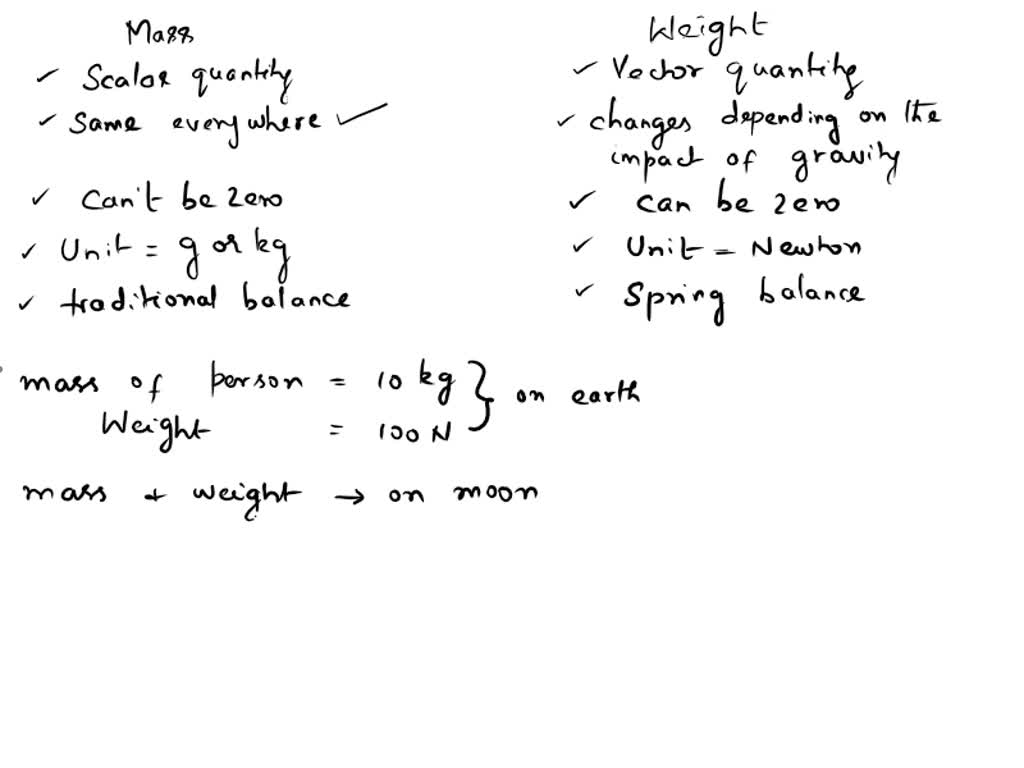 Mass
Scalar quantity
Same everywhere
Can't be zero
Unit = g or kg
traditional balance
Weight
Vector quantity
changes depending on the
impact of gravity
can be zero
Unit = Newton
Spring balance
mass of person = 10 kg } on earth
Weight = 100 N
mass + weight → on moon